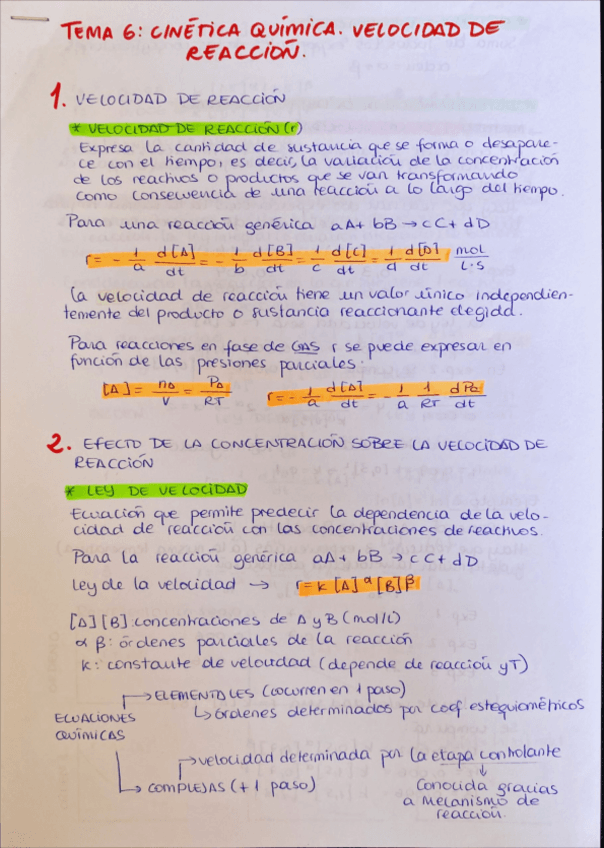 TEMA 6: CINÉTICA QUÍMICA. VELOCIDAD DE
REACCIÓN.
1. VELOCIDAD DE REACCIÓN
* VELOCIDAD DE REACCIÓN (r)
Expresa la cantidad de sustancia que se forma o desapare-
ce con el tiempo, es decir, la variación de la concentración
de los reactivos o productos que se van transformando
como consecuencia de una reacción a lo largo del tiempo.
Para una reacción genérica aA + bB → cC + dD
r = - 1/a d[A]/dt = - 1/b d[B]/dt = 1/c d[C]/dt = 1/d d[D]/dt mol/L·s
La velocidad de reacción tiene un valor único independien-
temente del producto o sustancia reaccionante elegida.
Para reacciones en fase de GAS r se puede expresar en
función de las presiones parciales:
[A] = nA/V = PA/RT r = - 1/a d[A]/dt = - 1/a 1/RT dPA/dt
2. EFECTO DE LA CONCENTRACIÓN SOBRE LA VELOCIDAD DE
REACCIÓN
* LEY DE VELOCIDAD
Ecuación que permite predecir la dependencia de la velo-
cidad de reacción con las concentraciones de reactivos.
Para la reacción genérica aA + bB → cC + dD
ley de la velocidad → r = k [A]^α [B]^β
[A] [B]: concentraciones de A y B (mol/L)
α β: órdenes parciales de la reacción
k: constante de velocidad (depende de reacción y T)
→ ELEMENTALES (ocurren en 1 paso)
↳ órdenes determinados por coef. estequiométricos
ECUACIONES
QUÍMICAS
→ velocidad determinada por la etapa controlante
→ COMPLEJAS (+ 1 paso) Conocida gracias
a mecanismo de
reacción.